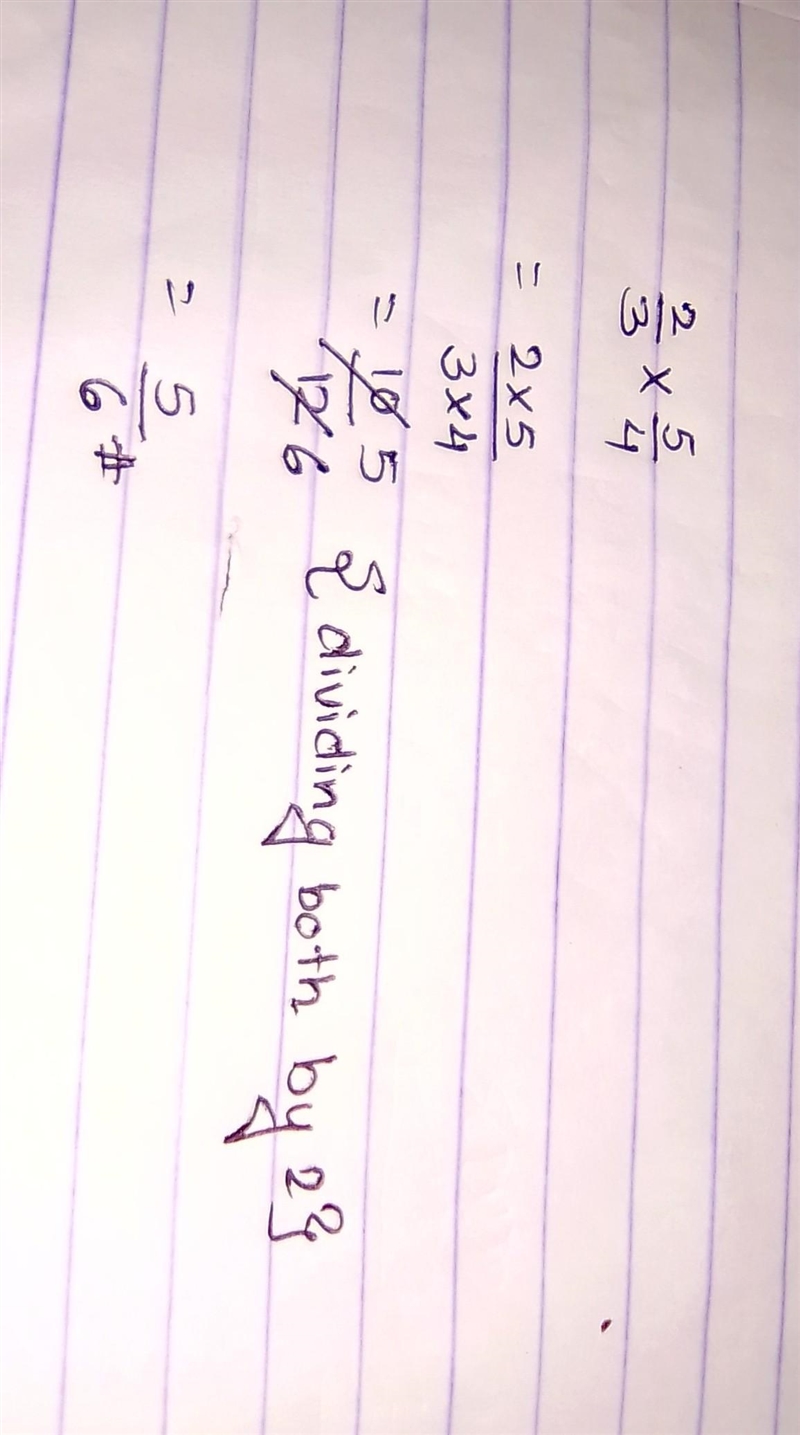 2/3 × 5/4
= 2×5/3×4
= 10/12 5/6 {dividing both by 2}
= 5/6 #